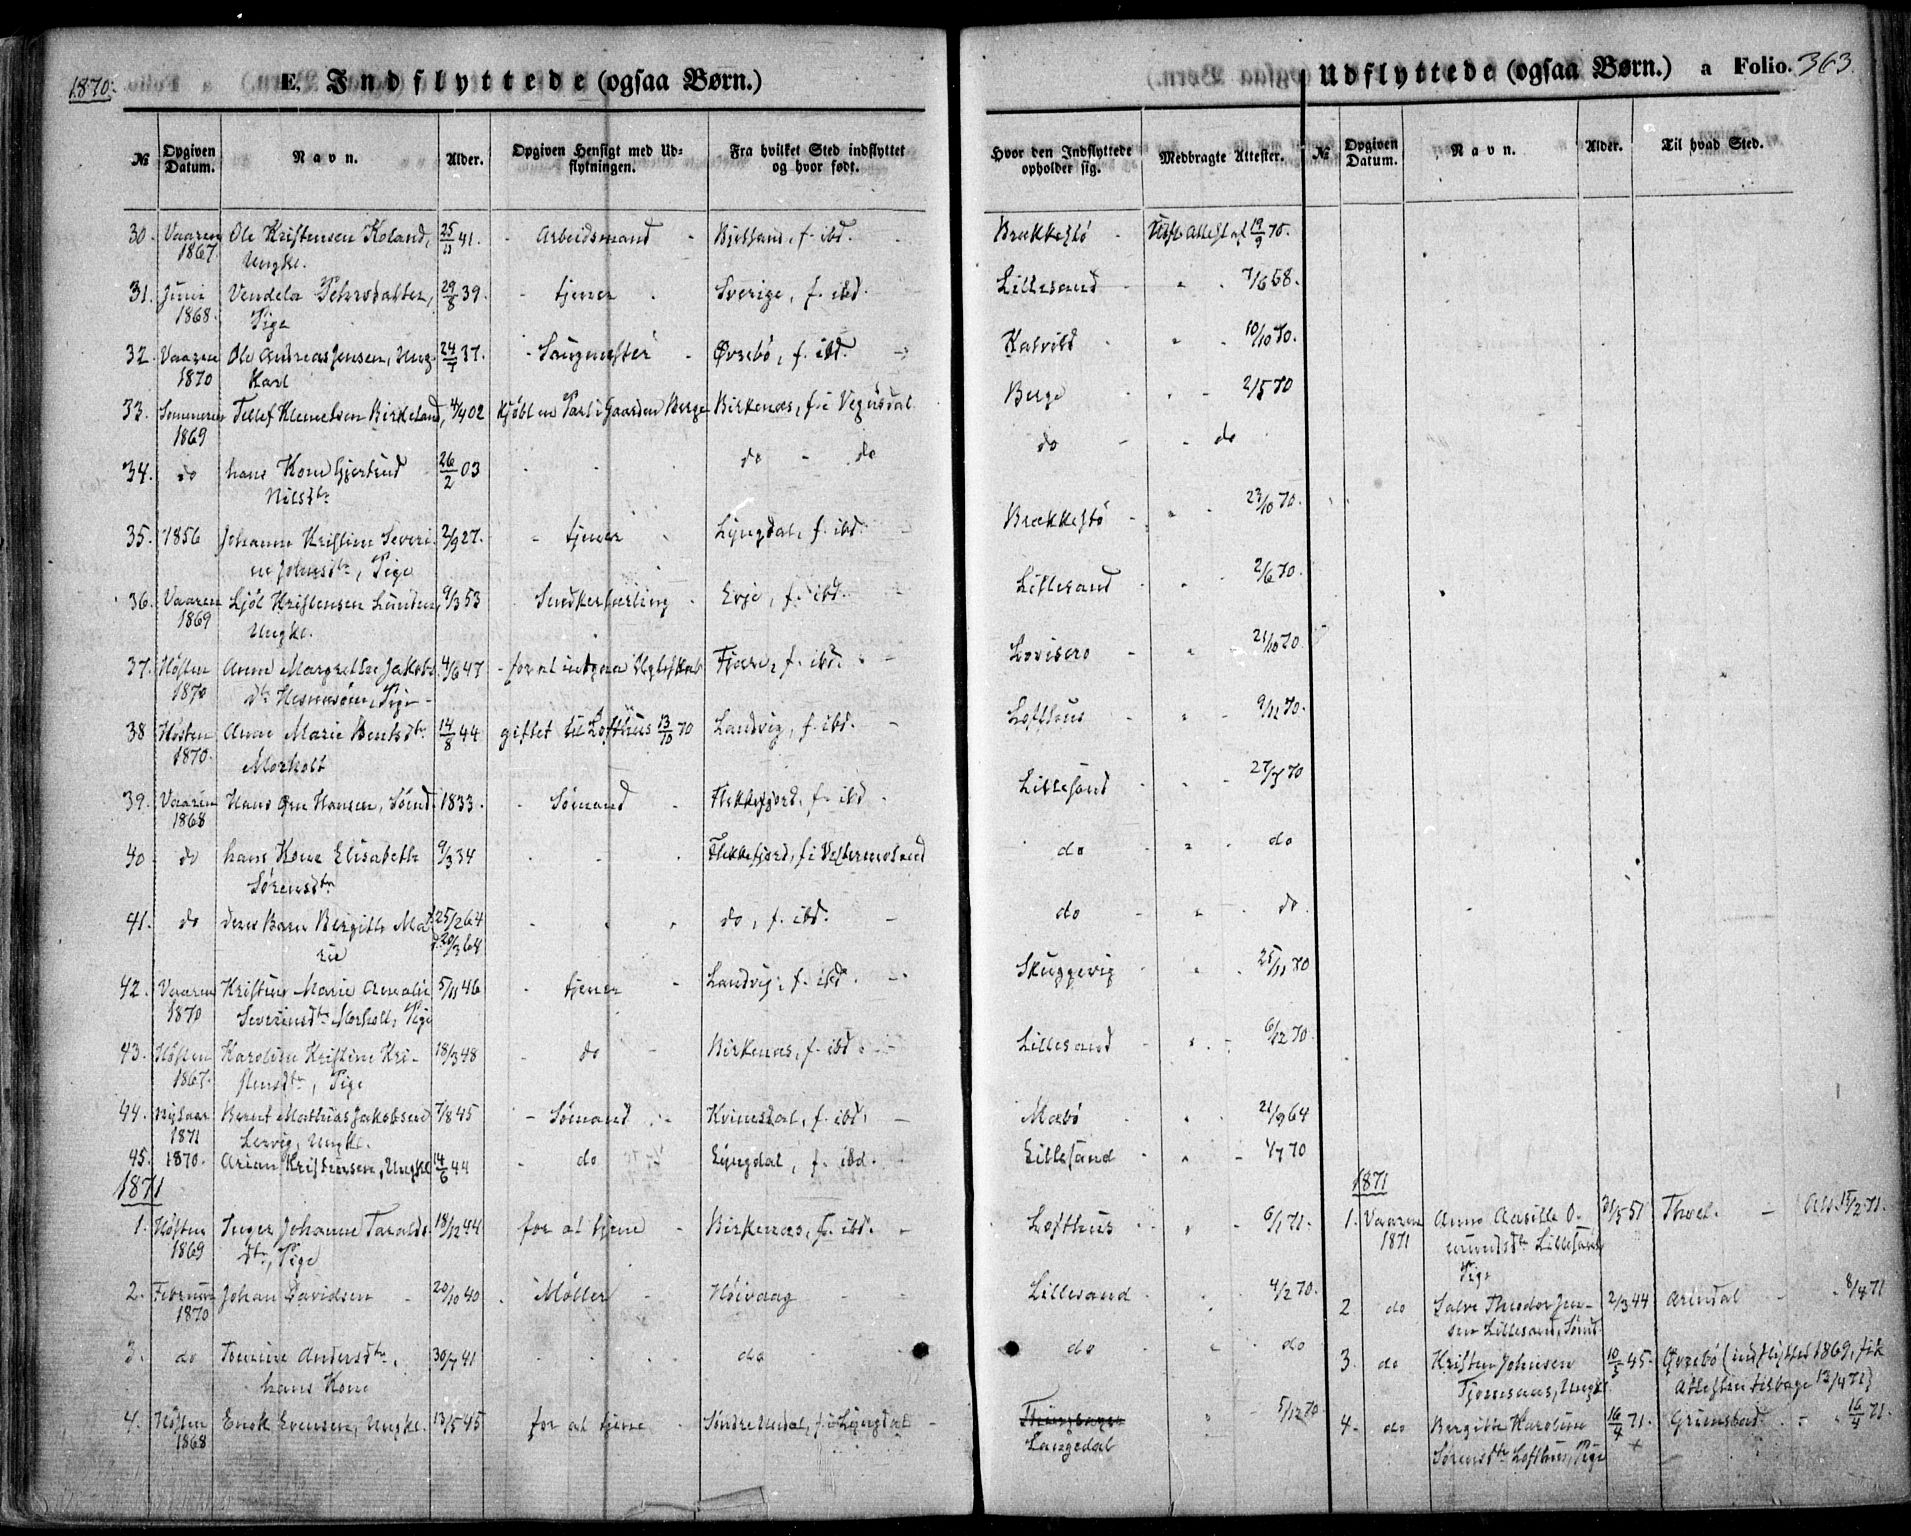 1870.
E. Indflyttede (ogsaa Børn.)
Udflyttede (ogsaa Børn.) a Folio. 363.
№ Opgiven Datum. Navn. Alder. Opgiven Hensigt med Udflytningen. Fra hvilket Sted indflyttet og hvor født. Hvor den Indflyttede opholder sig. Medbragte Attester. № Opgiven Datum. Navn. Alder. Til hvad Sted.
30. Vaaren Ole Kristensen Koland, 25/11 41. Arbeidsmand Bjelland, f. ibd. Brækkestø Attest af 19/9 70.
1867. Ungkl.
31. Juni Vendela Pehrsdatter, 29/8 39. tjener Sverige, f. ibd. Lillesand " 7/6 68.
1868. Pige
32. Vaaren Ole Andreas Jensen, Ung- 24/7 37. Saugmester Øvrebø, f. ibd. Kalvild " 10/10 70.
1870 Karl
33. Sommeren Tellef Klemetsen Birkeland, 4/4 02 kjøbt en Part i Gaarden Berge Birkenæs, f. i Vegusdal Berge " 2/5 70
1869
34. do hans Kone Gjertrud 26/2 03 " do do do do
Nilsdtr
35. 1856 Johanne Kristine Severi- 2/9 27. tjener Lyngdal, f. ibd. Brækkestø " 23/10 70.
ne Johnsdtr, Pige
36. Vaaren Ljøl Kristensen Lunden, 9/3 53 Snedkerlærling Evje, f. ibd. Lillesand " 2/6 70.
1869 Ungkl.
37. Høsten Anne Margrethe Jakobs- 4/6 47 for at indgaa Ægteskab Fjære, f. ibd. Lovisero " 21/10 70
1870 dtr Hesnesøen, Pige
38 Høsten Anne Marie Bentsdtr 14/8 44 giftet til Lofthus 13/10 70 Landvig, f. ibd. Lofthus " 9/11 70.
1870. Morholt
39. Vaaren Hans Hansen, Sømd. 1833. Sømand Flekkefjord, f. ibd. Lillesand " 27/7 70
1868
40 do hans Kone Elisabeth 9/3 34 Flekkefjord, f. i do " do
Sørensdtr
41. do deres Barn Bergitte Ma- 25/2 64 do, f. ibd. do " do
rie
42. Vaaren Kristine Marie Amalie 5/11 46 tjener Landvig, f. ibd. Skuggevig " 25/11 70
1870 Severinsdtr Morholt, Pige
43. Høsten Karoline Kristine Kri- 18/3 48 do Birkenæs, f. ibd. Lillesand " 6/12 70
1867. stensdtr, Pige
44. Nytaar Bernt Mathias Jakobsen 7/8 45 Sømand Kvinesdal, f. ibd. Mæbø " 21/9 64
1871 Lervig, Ungkl.
45. 1870. Arian Kristensen, Ungkl 14/6 44 do Lyngdal, f. ibd. Lillesand " 1/7 70
1871
1871
1. Høsten Inger Johanne Taralds- 18/12 44 for at tjene Birkenæs, f. ibd. Lofthus " 6/1 71.
1869 dtr, Pige
1. Vaaren Anne Aasille O- 31/5 51 Thvet. Att. 15/2 71.
1871 mundsdtr Lillesand,
Pige
2. Februar Johan Davidsen 20/10 40 Møller Høivaag Lillesand 4/2 70.
1870
2 do Salve Theodor Jen- 2/3 44 Arendal " 8/4 71
sen Lillesand, Sømd.
3. do Tomine Andersdtr, 30/7 41 do do " do
hans Kone
3. do Kristen Johnsen 10/5 45. Øvrebø (indflyttet 1869, fik
Tjønnaas, Ungkl. Attesten tilbage 12/4 71)
4. Høsten Enok Evensen, Ungkl. 13/5 45 for at tjene Søndre Undal, f. i Lyngdal " 5/12 70
1868 Langedal
4. do Bergitte Karoline 16/4 71. Grimstad " 16/4 71.
Sørensdtr Lofthus, Pige